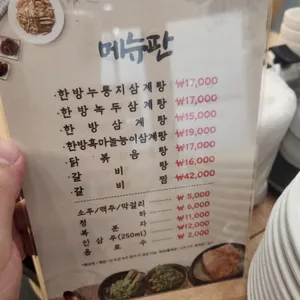 메뉴판
·한방누룽지삼계탕 ₩17,000
·한방녹두삼계탕 ₩15,000
·한방삼계탕
·한방흑마늘능이삼계탕 ₩19,000
·닭볶음탕 ₩17,000
·갈비탕 ₩16,000
·갈비찜 ₩42,000
소주/맥주/막걸리 ₩5,000
청하 ₩6,000
복분자 ₩11,000
인삼주(250ml) ₩12,000
음료수 ₩2,000